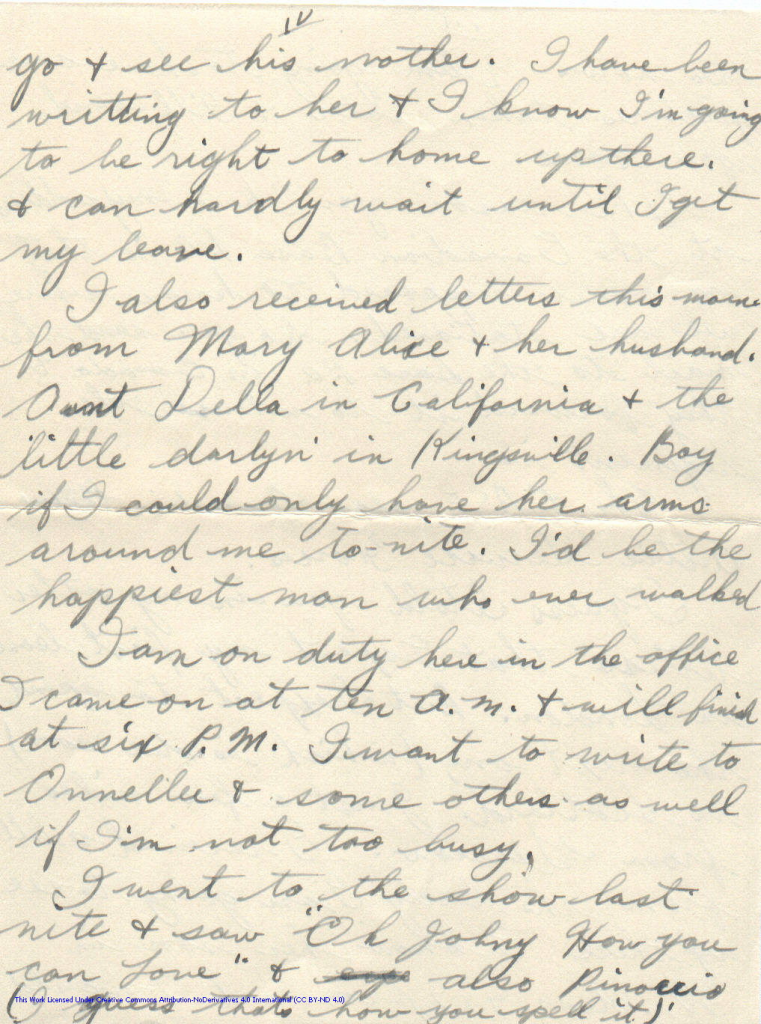 IV
go & see his mother. I have been
writting to her & I know I'm going
to be right to home up there.
& can hardly wait until I get
my leave.
I also received letters this morn
from Mary Alice & her husband.
Aunt Della in California & the
little darlyn' in Kingsville. Boy
if I could only have her arms
around me to-nite. I'd be the
happiest man who ever walked
I am on duty here in the office
I came on at ten A.M. & will finish
at six P.M. I want to write to
Onnellee & some others as well
if I'm not too busy.
I went to the show last
nite & saw "Oh Johny How you
can Love" & also Pinoccio
This Work Licensed Under Creative Commons Attribution-NoDerivatives 4.0 International (CC BY-ND 4.0)
(I guess thats how you spell it)'